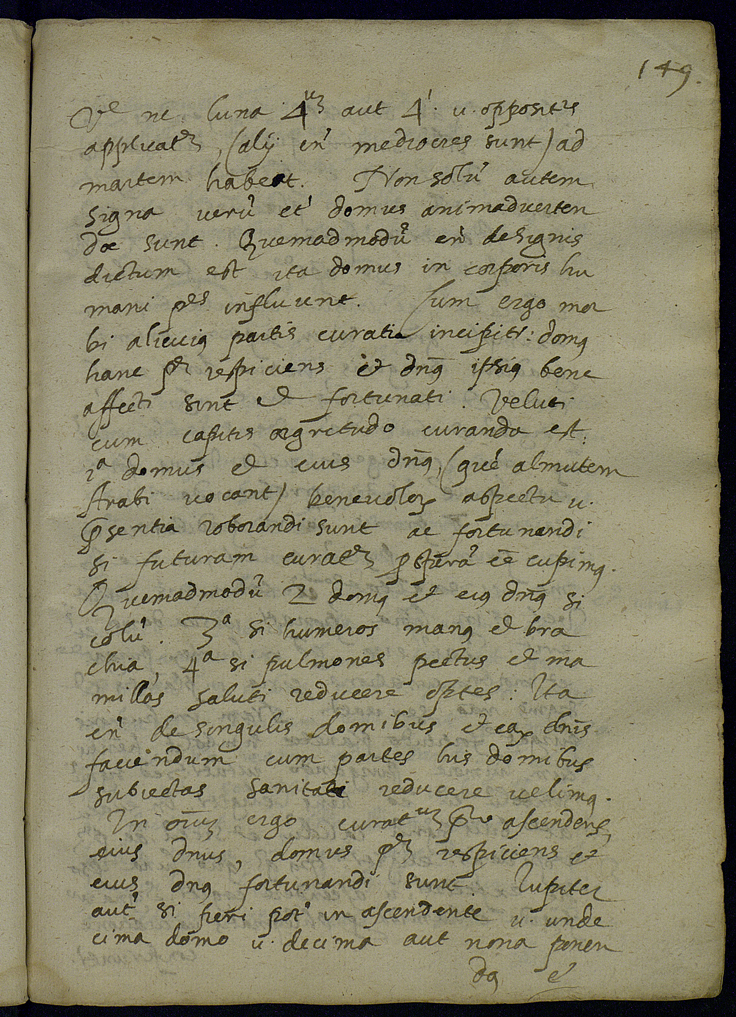 149.
Vel ne luna 4um aut 4i v. oppositis
applicatn, (alij en' mediocres sunt) ad
martem habeat. Non solū autem
signa verū et' domus animadverten
dæ sunt. Quemadmodū en' de signis
dictum est ita domus in corporis hu
mani ptes influunt. Cum ergo mor
bi alicuiq partis curatio incipitr: domq
hanc ptem respiciens et dnq ipsiq bene
affecti sint et fortunati. Veluti
cum capitis ægritudo curanda est:
1a domus et eius dnq, (quē almutem
Arabi vocant) benevolor aspectu v.
pñsentia roborandi sunt ac fortunandi
si futuram curatn prosperā eē cupimq.
Quemadmodū 2 domq et eiq dnq si
colū. 3a si humeros manq et bra
chia, 4a si pulmones pectus et ma
millas saluti reducere optes: Ita
en' de singulis domibus et ear dnis
faciendum cum partes his domibus
subiectas sanitati reducere velimq.
In oium ergo curatum pte ascendens,
eius dnus, domus ptem respiciens et
eius dnq fortunandi sunt. Iupiter
aut' si fieri pot' in ascendente v. unde
cima domo v. decima aut nona ponen
dq et